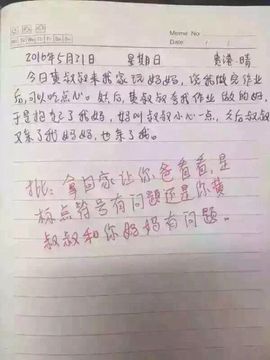 Memo No.
Date
2016年5月21日 星期日 晴
今日黄叔叔来我家玩妈妈，说我做完作业
后，可以吃点心。然后，黄叔叔夸我作业做的好，
于是妈妈了我妈，妈叫叔叔小心一点，之后叔叔
又亲了我妈妈，也亲了我。
批：拿回家让你爸看看，是
标点符号有问题还是你黄
叔叔和你妈妈有问题。